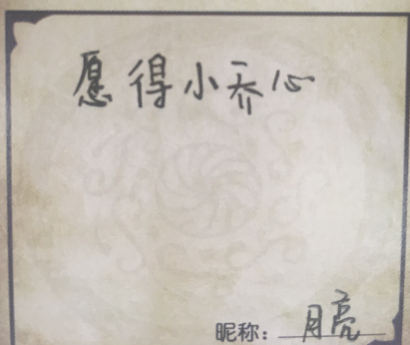 愿得小乔心
昵称：月亮